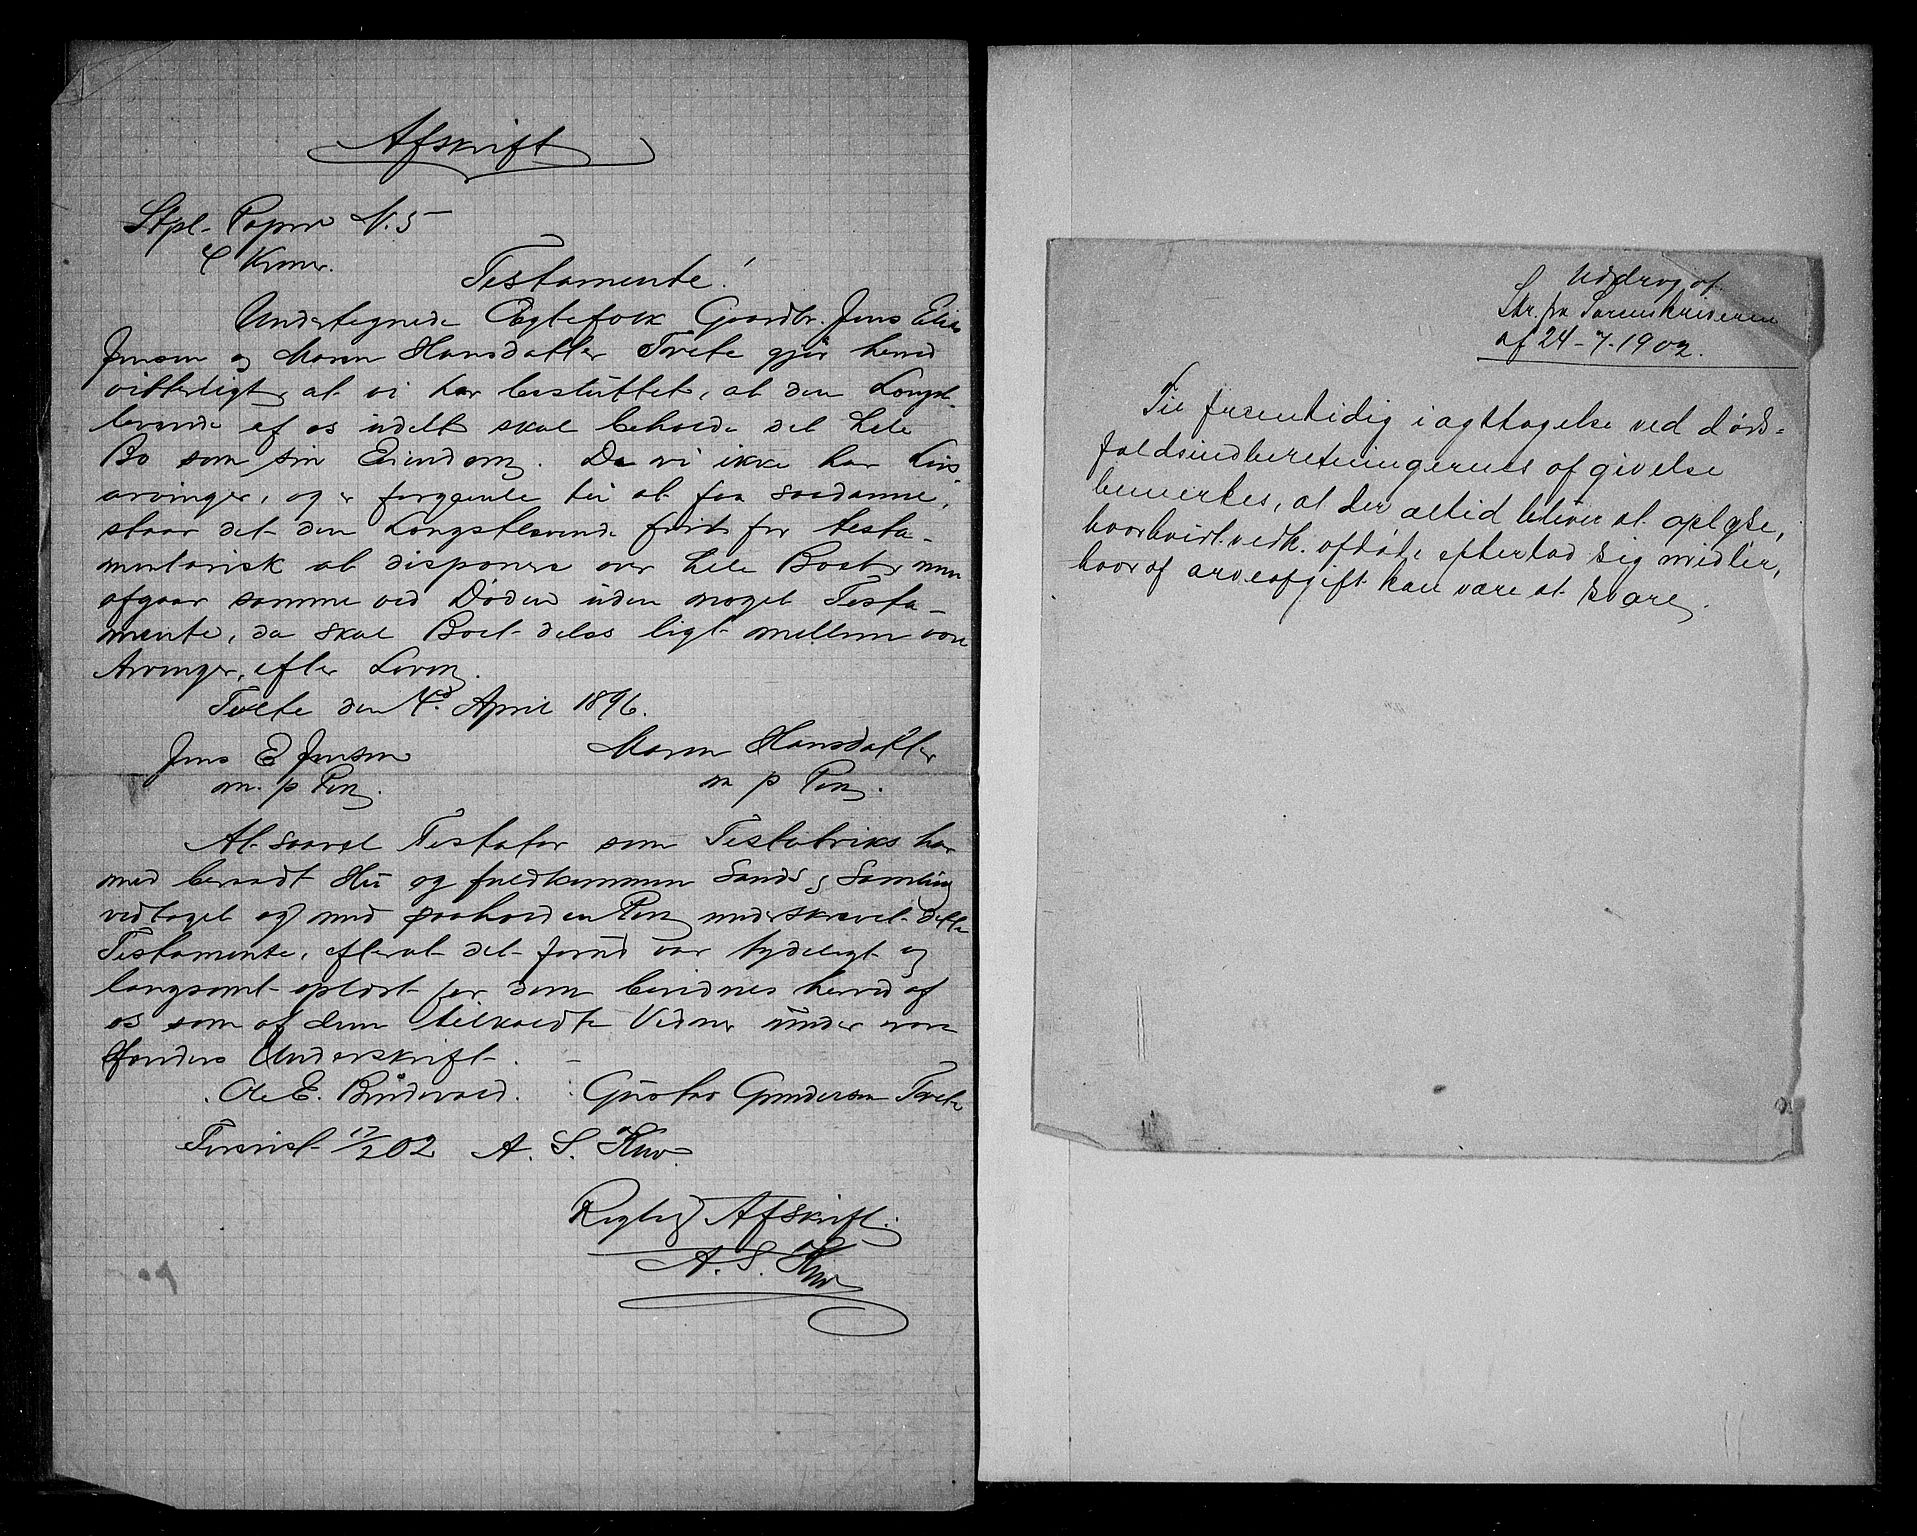 Afskrift
Stpl. Papir N. 5
4 Kroner.
Testamente!
Undertegnede Ægtefolk Gaardbr. Jens Elias
Jensen og Maren Hansdatter Tvete gjør herved
vitterligt, at vi har besluttet, at den Længst-
levende af os udelt skal beholde det hele
Bo som sin Eiendom. Da vi ikke har Livs
arvinger, og er forgjæves til at faa saadanne,
staar det den Længstlevende frit for testa-
mentarisk at disponere over hele Boet, men
afgaar samme ved Døden uden noget Testa-
mente, da skal Boet deles ligt mellem vore
Arvinger, efter Loven.
Tvete den 4d. April 1896.
Jens E Jensen
m. p Pen.
Maren Hansdatter
m p Pen.
At saavel Testator som Testatriks har
med beraadt Hu og fuldkommen Sands & Samling
vedtaget og med paaholden Pen underskrevet dette
Testamente, efterat det forud var tydeligt og
langsomt oplæst for dem bevidnes herved af
os som af dem tilkaldte Vidner under vore
Hænders Underskrift.
Ole E. Bråvold. Gustav Gundersen Tvete
Forevist 17/2 02 A. S.
Rigtig Afskrift.
A. S.
Uddrag af
Skr. fra Sorenskriveren
af 24-7-1902.
Til fremtidig iagttagelse ved døds-
faldsindberetningernes afgivelse
bemerkes, at der altid bliver at oplyse,
hvorvidt vedk. afdøde efterlod sig midler,
hvoraf arveafgift kan være at svare.